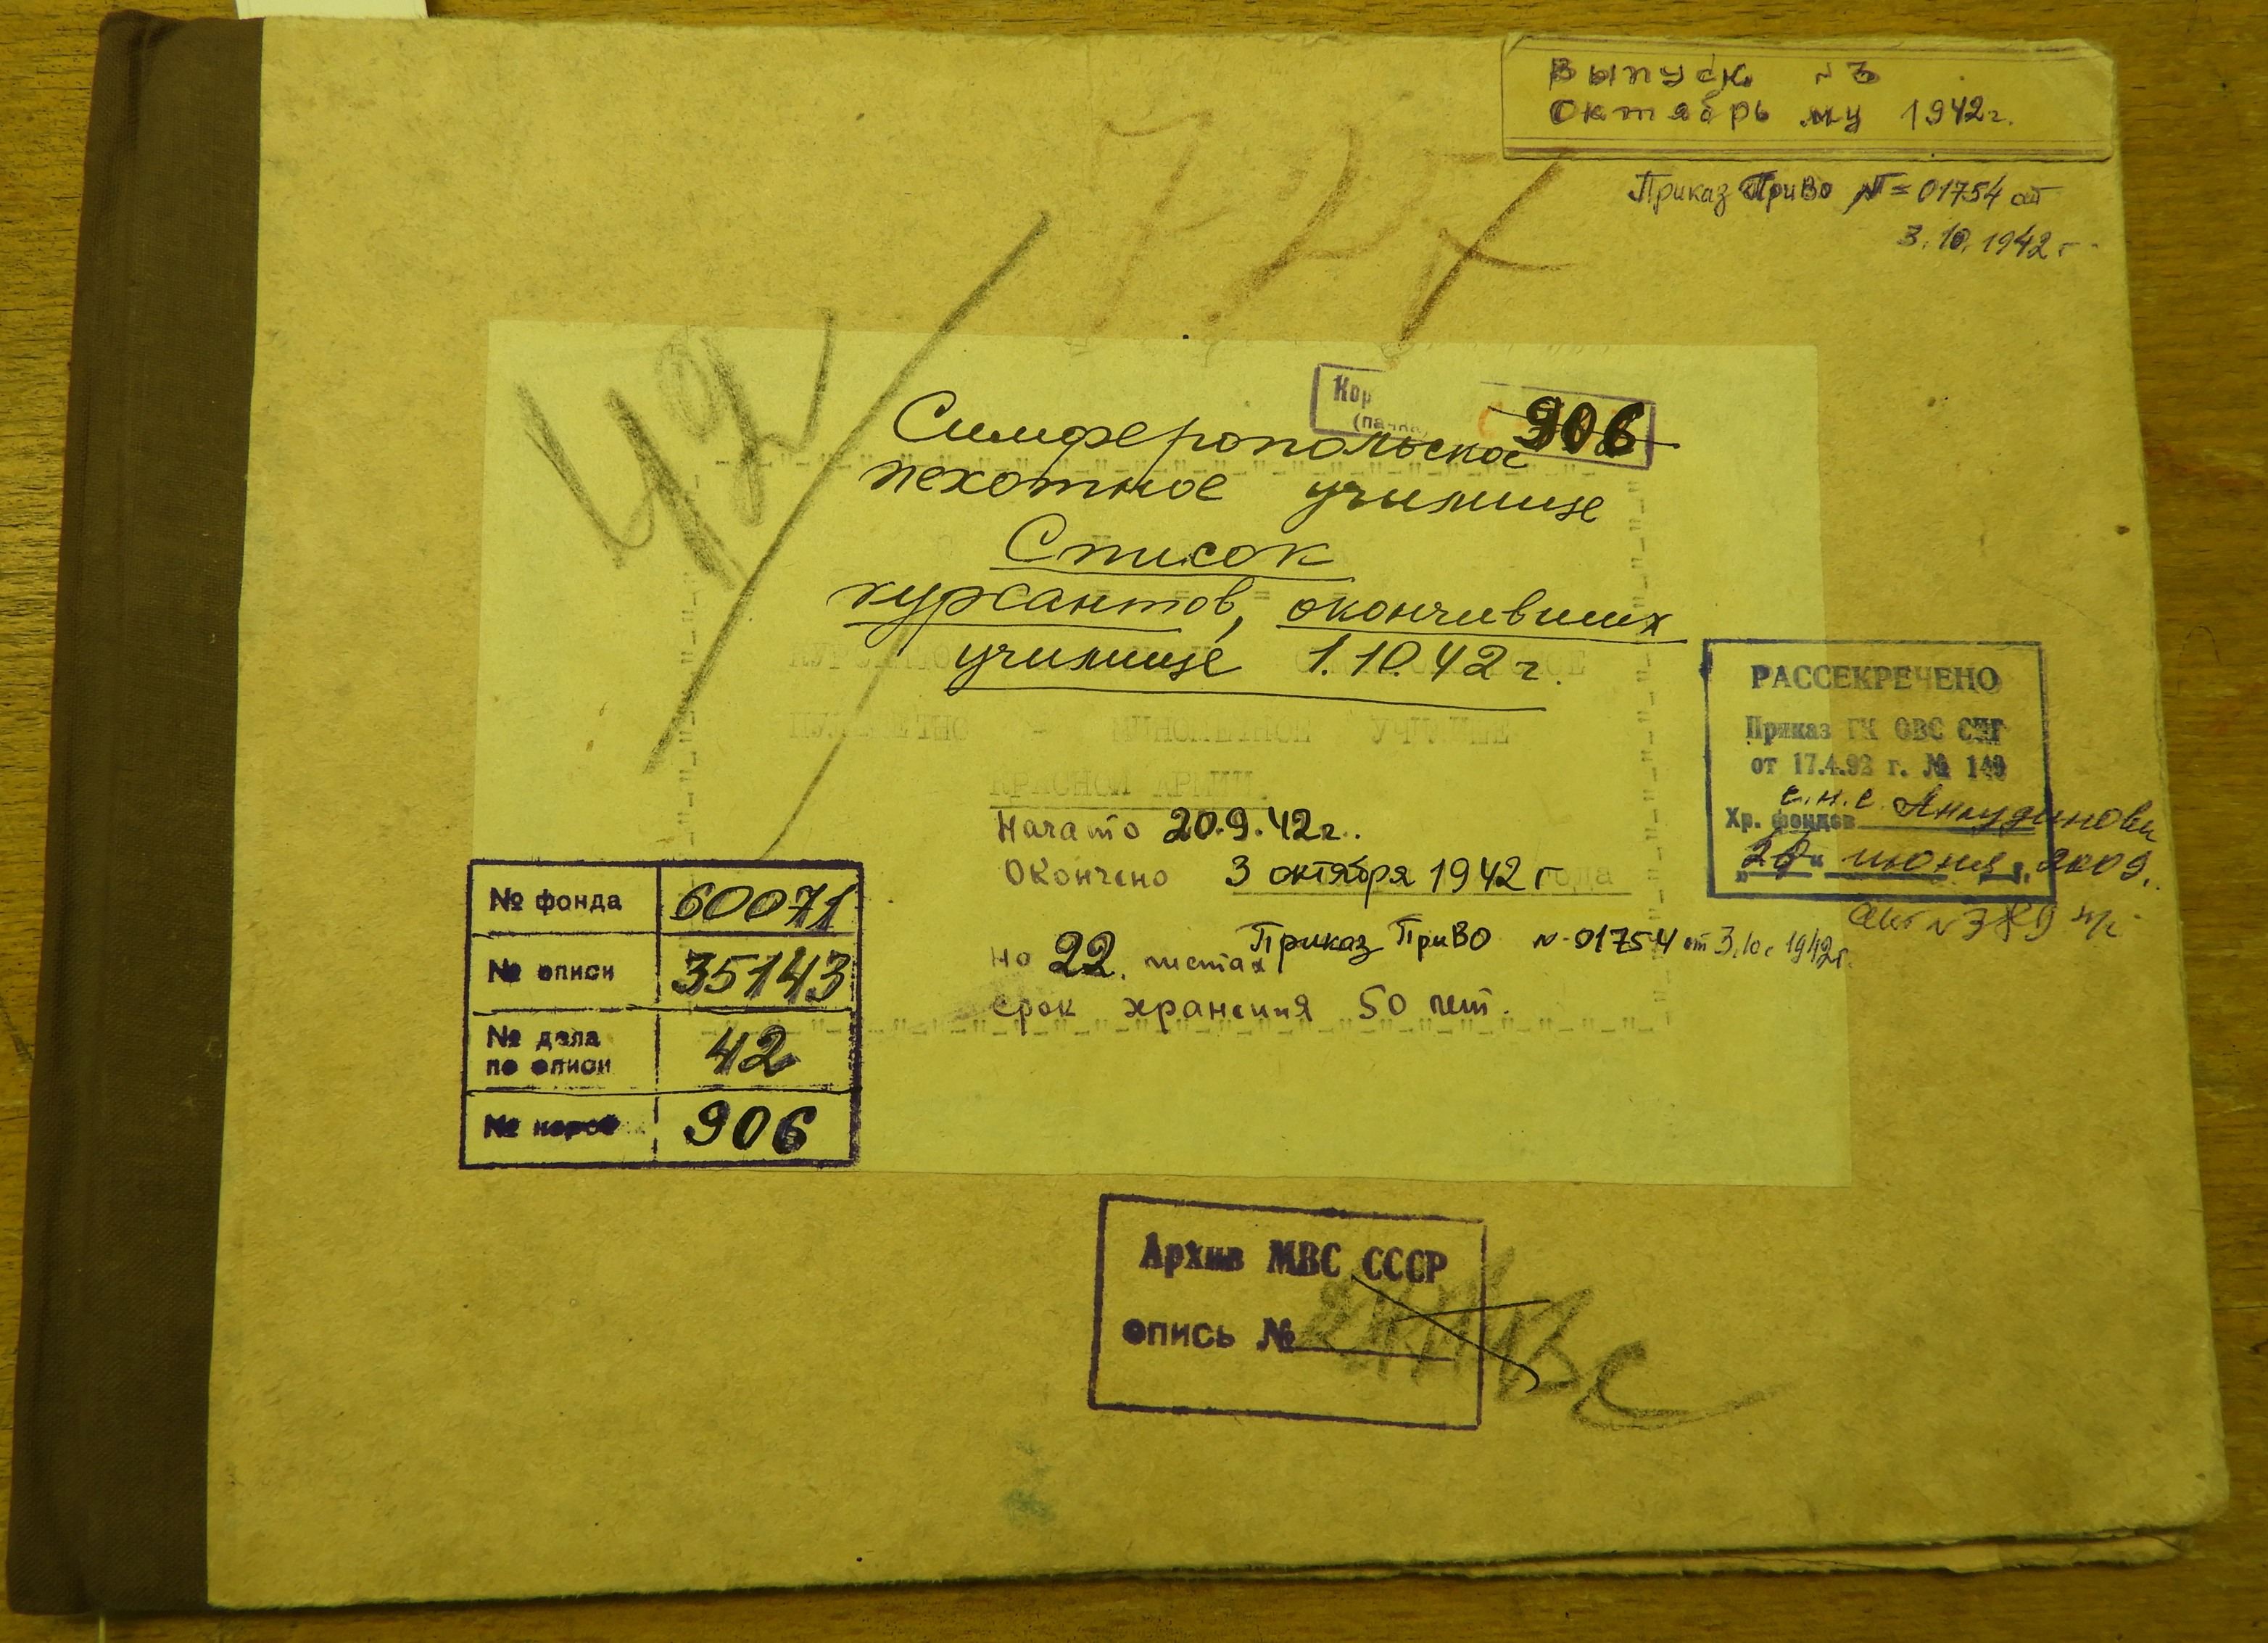 Выпуск №3
Октябрь му 1942г.
Приказ ПриВо № 01754 от
3.10.1942 г.
42
906
Симферопольское
пехотное училище
Список
курсантов, окончивших
училище 1.10.42 г.
КРАСНОЙ АРМИИ.
Начато 20.9.42г.
Окончено 3 октября 1942 года
Приказ ПриВО №-01754 от 3.10.1942г.
на 22 листах
срок хранения 50 лет.
РАССЕКРЕЧЕНО
Приказ ГК ОВС СНГ
от 17.4.92 г. № 149
с.н.с.
Хр. фондов
июня 2009.
№ фонда 60071
№ описи 35143
№ дела
по описи 42
№ короб 906
Архив МВС СССР
опись №